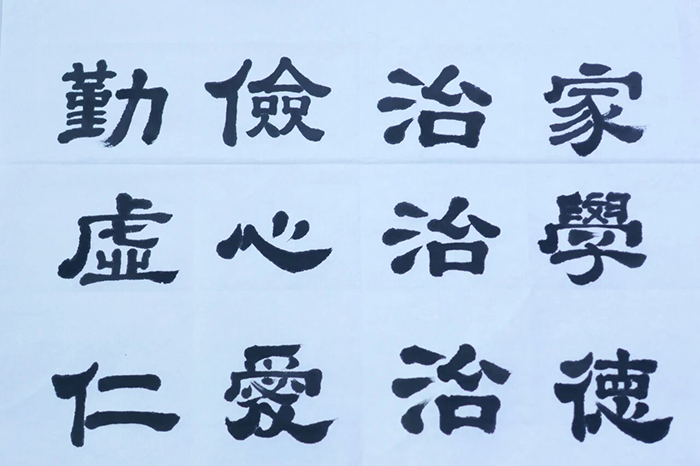 勤儉治家
虛心治學
仁愛治德